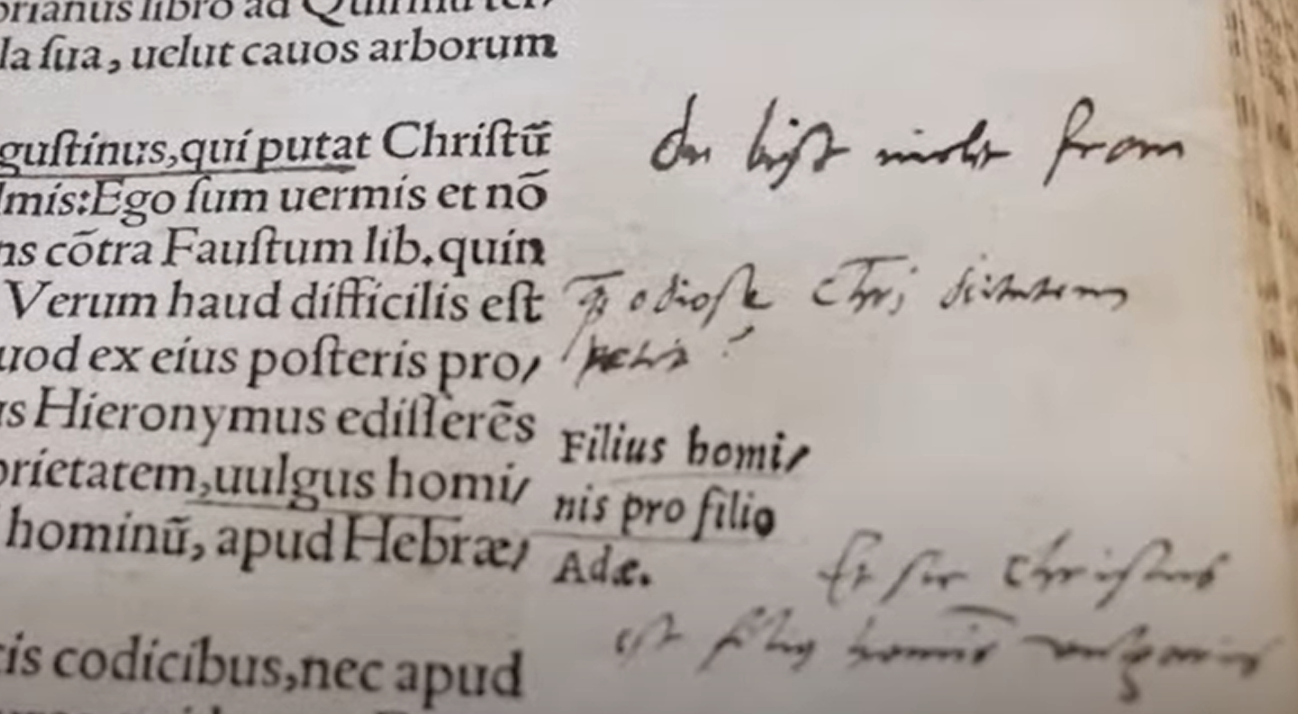 rianus libro ad
la ſua, uelut cauos arborum
guſtinus,qui putat Chriſtū
lmis:Ego ſum uermis et nō
ns cōtra Fauſtum lib.quin
Verum haud difficilis eſt
uod ex eius poſteris pro/
us Hieronymus ediſſerēs
prietatem,uulgus homi/
hominū, apud Hebræ/
cis codicibus,nec apud
du biſt nicht from
odioſe Chri
Filius homi/
nis pro filio
Adæ.
Et ſic Chriſtus
eſt filiꝰ hominis vulgaris